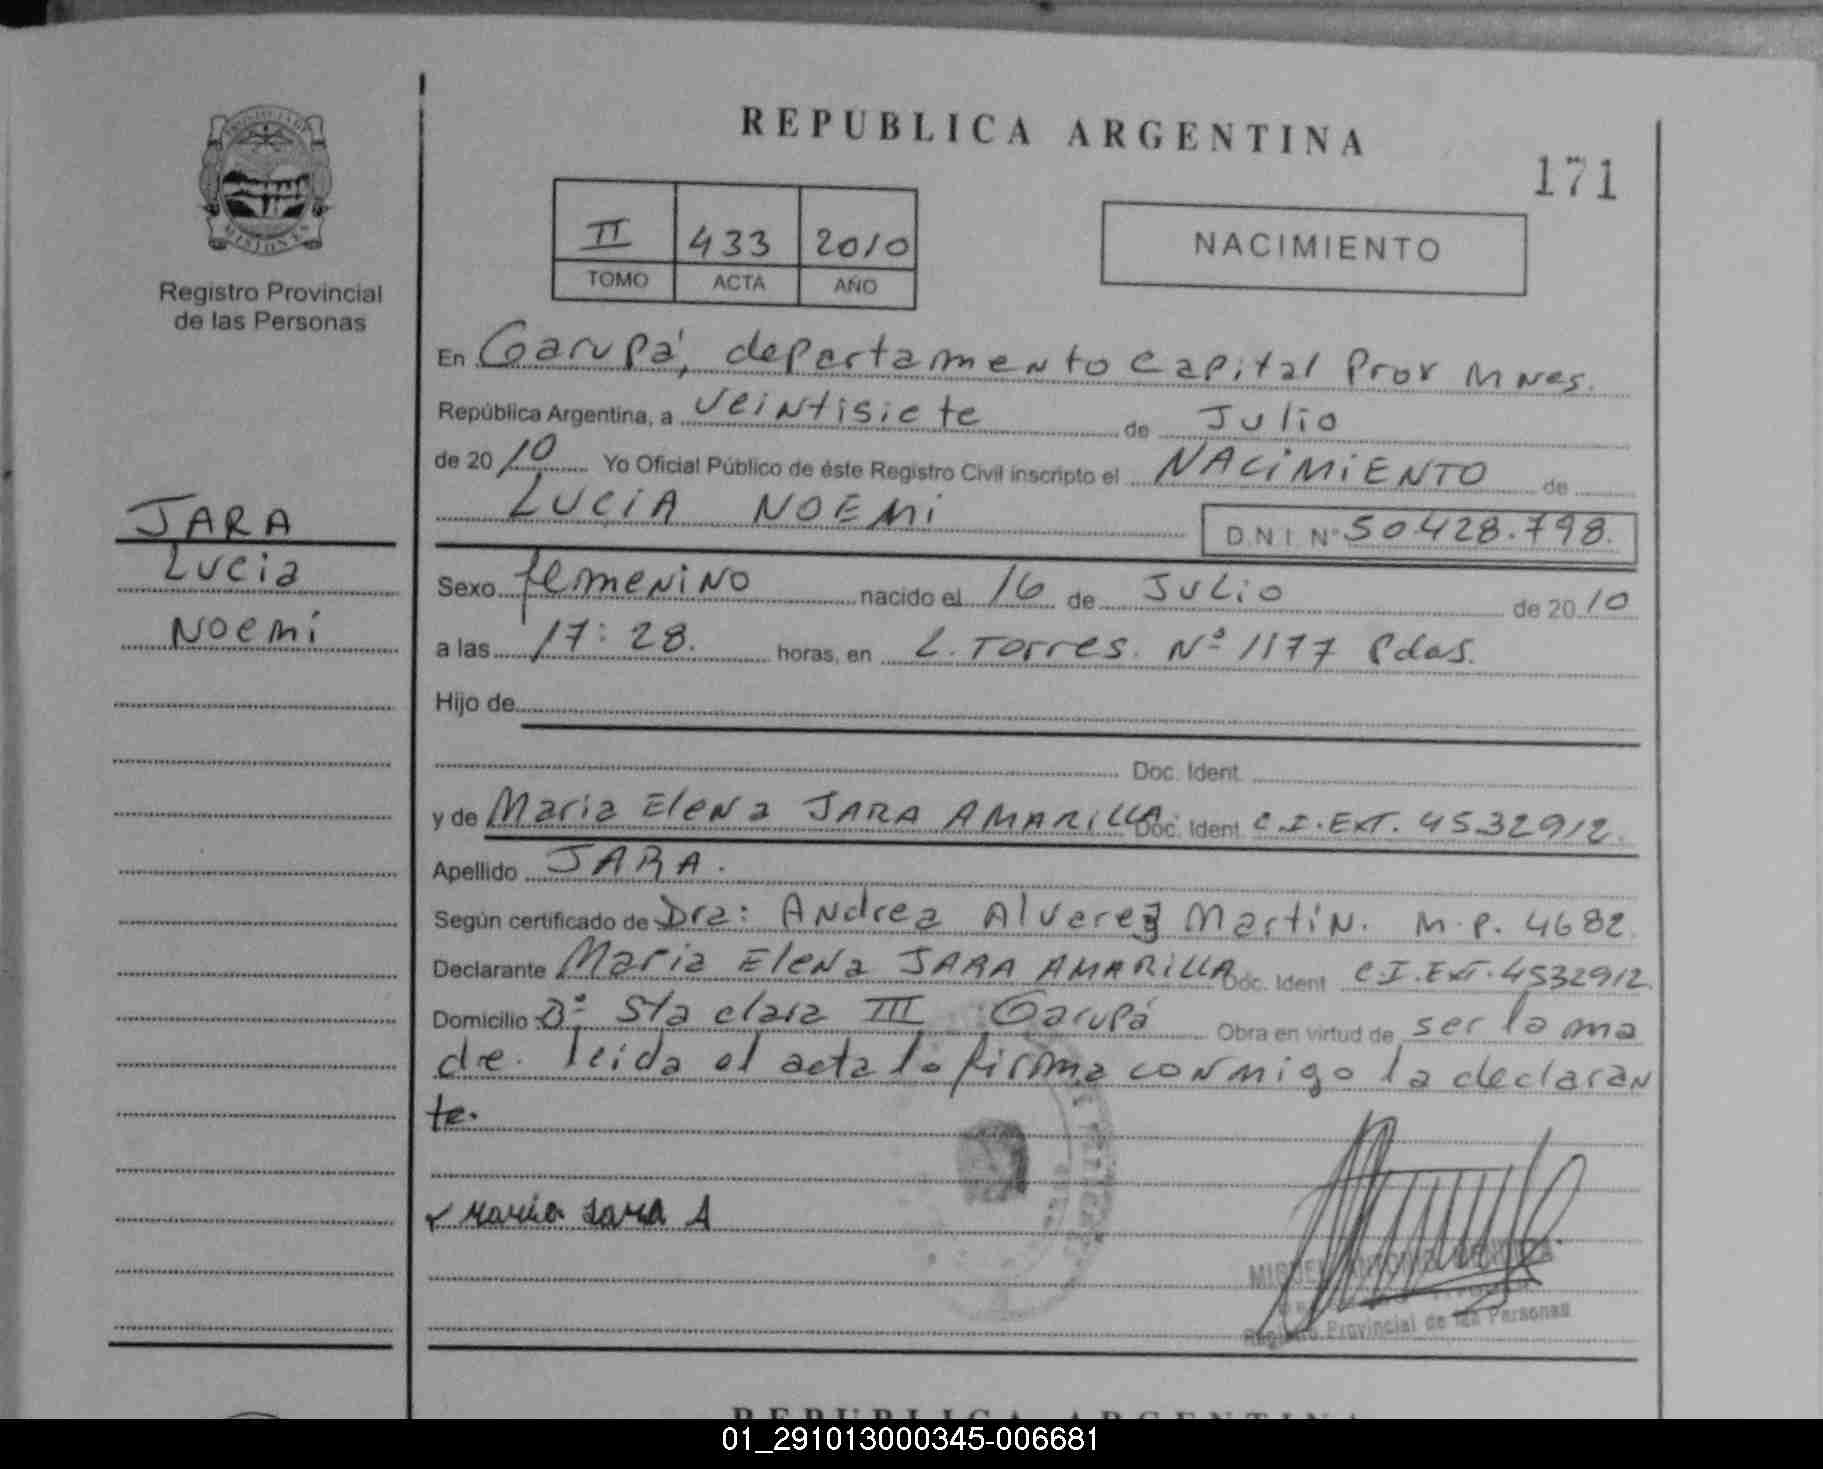 REPUBLICA ARGENTINA
171
PROVINCIA DE
MISIONES
Registro Provincial
de las Personas
II 433 2010
TOMO ACTA AÑO
NACIMIENTO
En Garupá, departamento Capital Prov Mnes.
República Argentina, a veintisiete de Julio
de 2010 Yo Oficial Público de éste Registro Civil inscripto el NACIMIENTO de
LUCIA NOEMI D.N.I. Nº 50.428.798.
JARA
Lucia
Noemi
Sexo femenino nacido el 16 de Julio de 2010
a las 17:28. horas, en L. Torres. Nº 1177 Pdas.
Hijo de
Doc. Ident.
y de Maria Elena JARA AMARILLA Doc. Ident. C.I.Ext. 4532912.
Apellido JARA.
Según certificado de Dra: Andrea Alverez Martin. M.P. 4682.
Declarante Maria Elena JARA AMARILLA Doc. Ident. C.I.Ext. 4532912.
Domicilio Bº Sta clara III Garupá Obra en virtud de ser la ma
dre. leida el acta la firma conmigo la declaran
te.
Maria Jara A
MIGUEL
Registro Provincial de las Personas
REPUBLICA ARGENTINA
01_291013000345-006681